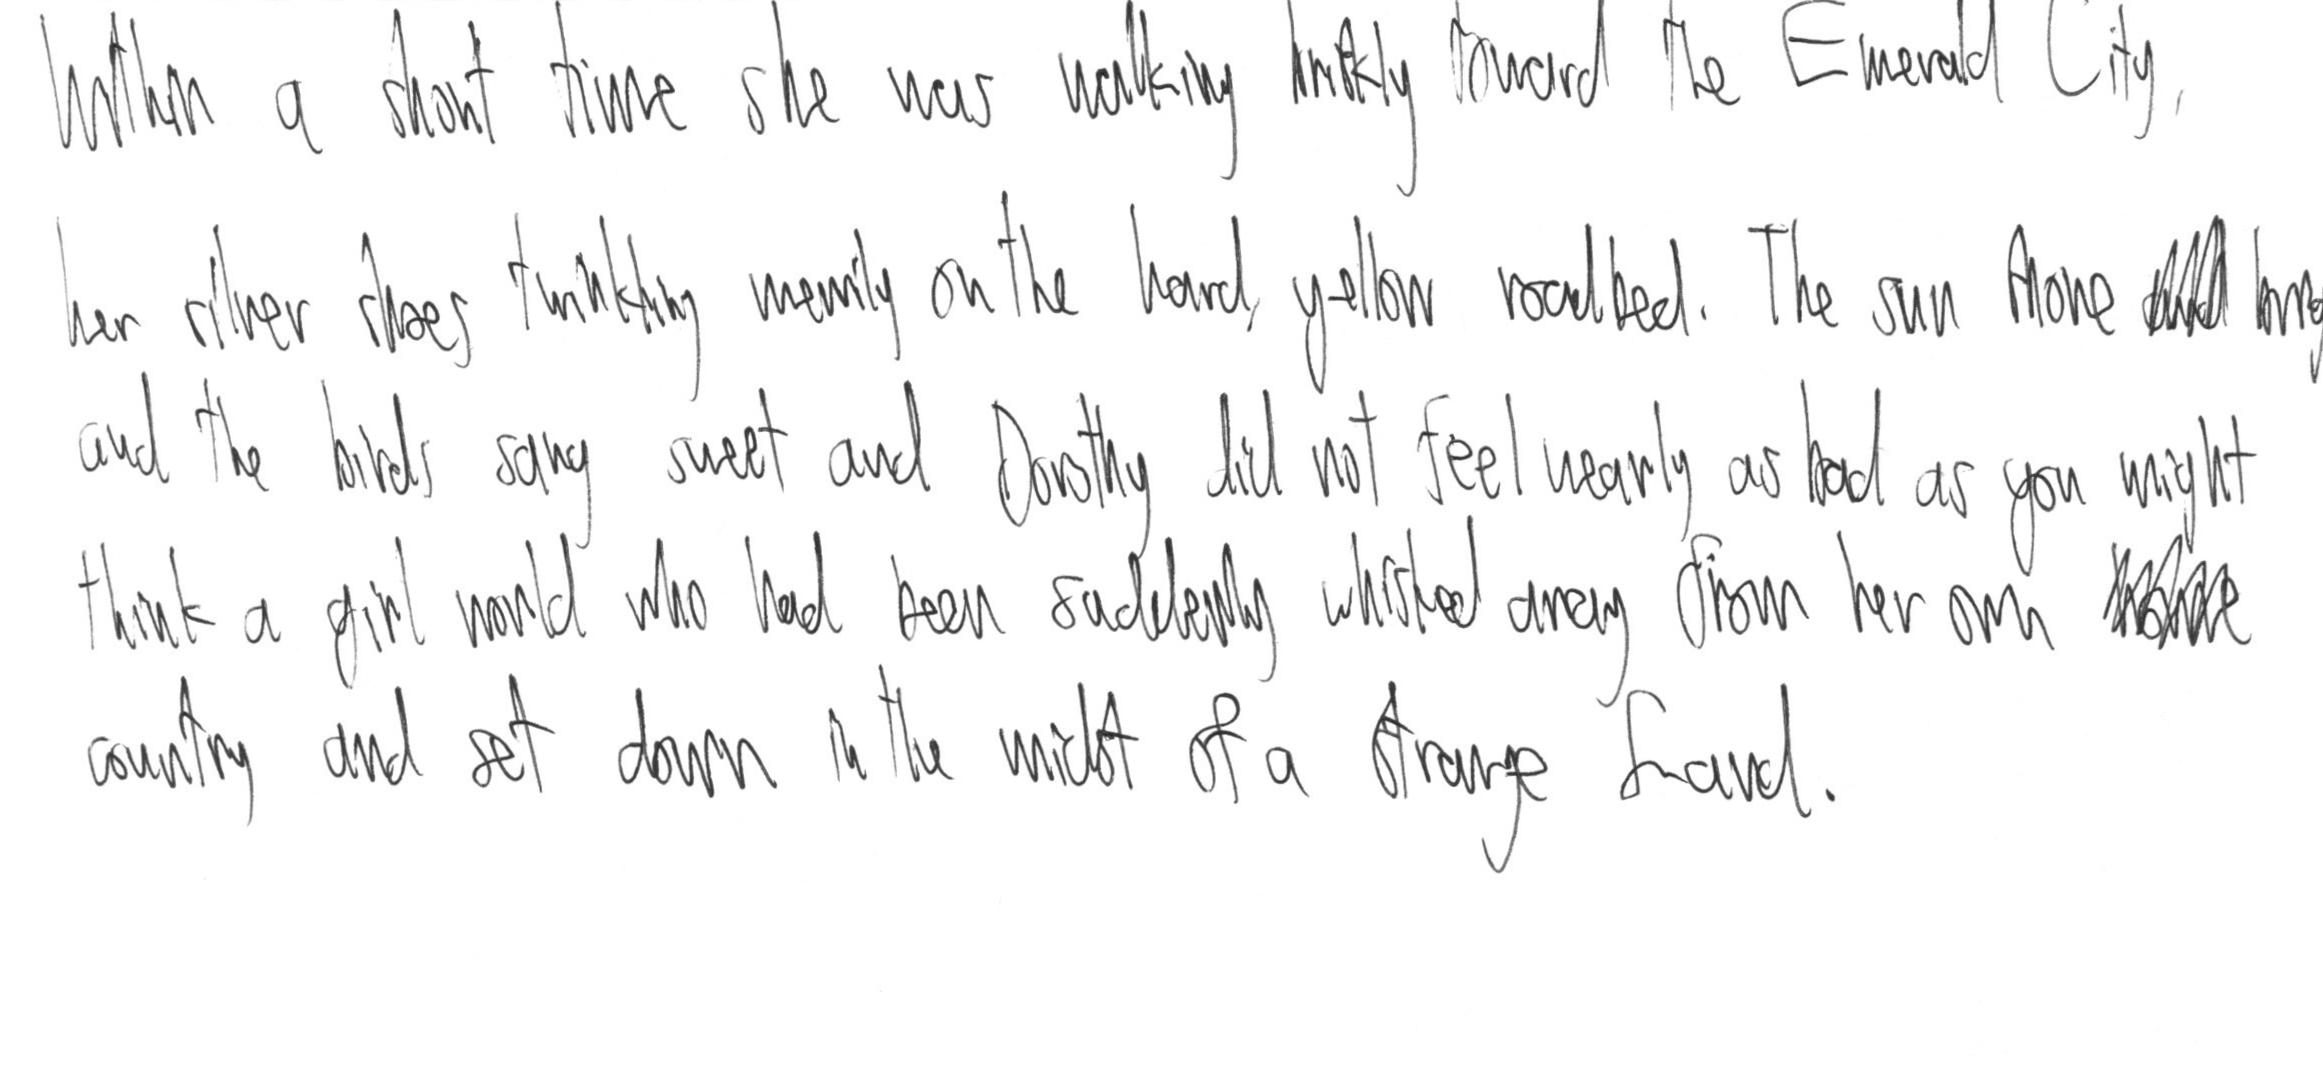 Within a short time she was walking briskly toward the Emerald City,
her silver shoes twinkling merrily on the hard, yellow roadbed. The sun shone
and the birds sang sweet and Dorothy did not feel nearly as bad as you might
think a girl would who had been suddenly whisked away from her own
country and set down in the midst of a strange land.